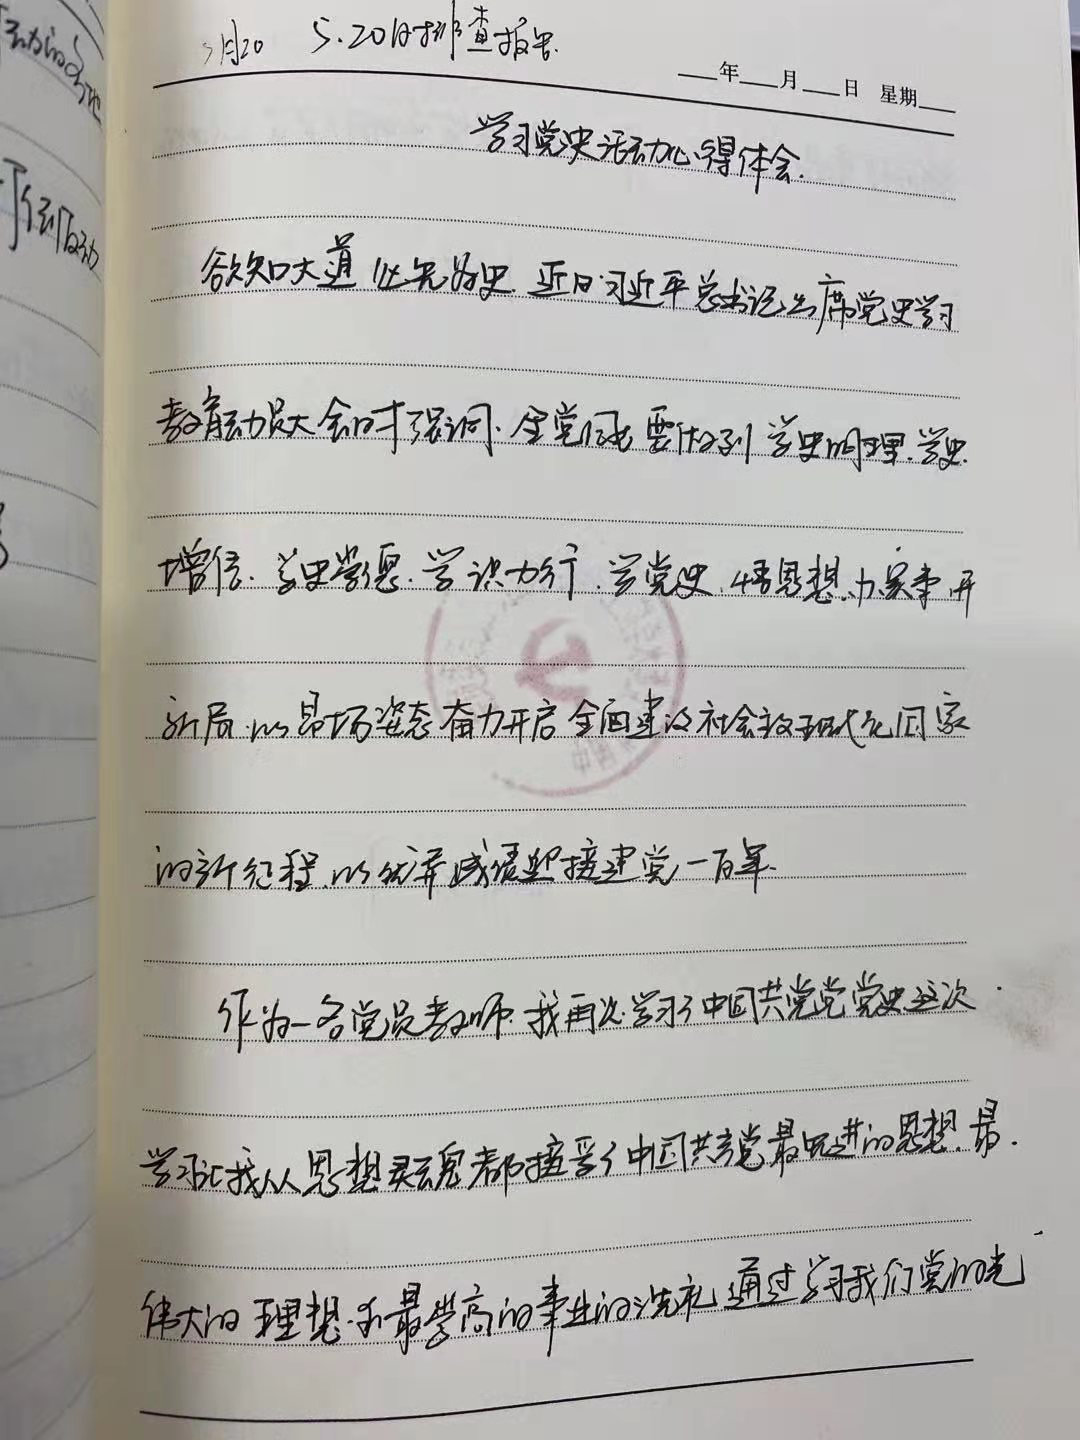 5月20 5.20日排查报告.
___年___月___日 星期___
学习党史活动心得体会.
欲知大道 必先为史. 近日习近平总书记出席党史学习
教育动员大会时强调. 全党同志要做到 学史明理. 学史
增信. 学史崇德. 学史力行. 学党史. 悟思想. 办实事 开
新局. 以昂扬姿态奋力开启全面建设社会主义现代化国家
的新征程. 以优异成绩迎接建党一百年.
作为一名党员教师. 我再次学习了中国共党党党史这次
学习让我从思想灵魂都接受了中国共产党最先进的思想. 最
伟大的理想. 和最崇高的事业的洗礼 通过学习我们党的光